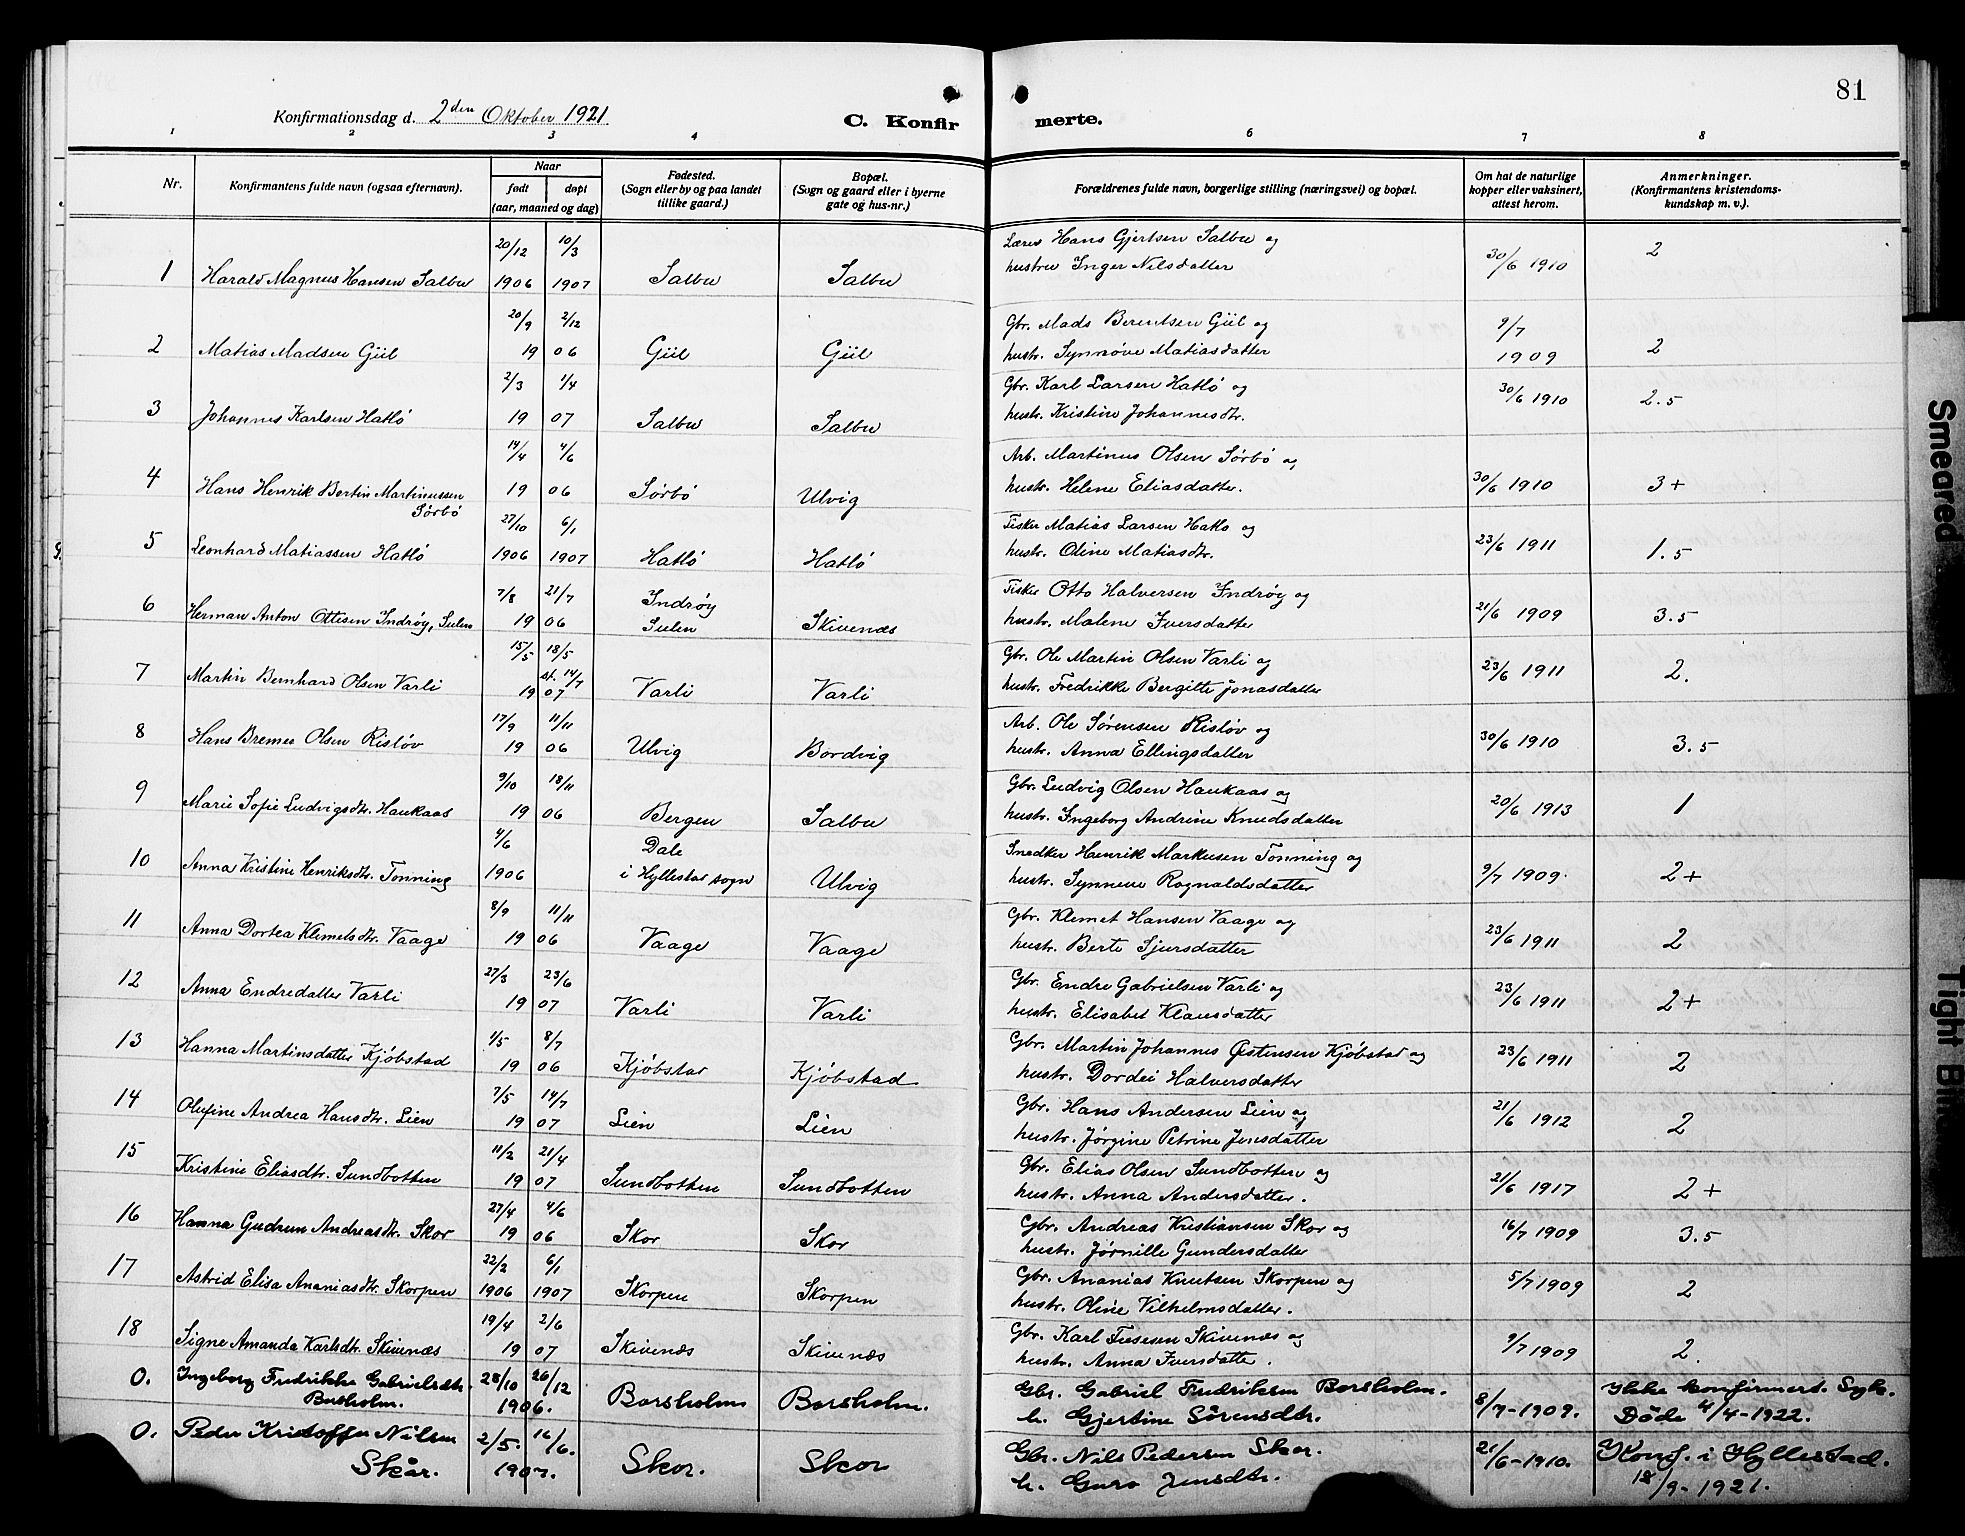 81
Konfirmationsdag d. 2den Oktober 1921
C. Konfirmerte.
1 2 3 4 5 6 7 8
Nr. Konfirmantens fulde navn (ogsaa efternavn). Naar født døpt (aar, maaned og dag) Fødested. (Sogn eller by og paa landet tillike gaard.) Bopæl. (Sogn og gaard eller i byerne gate og hus-nr.) Forældrenes fulde navn, borgerlige stilling (næringsvei) og bopæl. Om hat de naturlige kopper eller vaksinert, attest herom. Anmerkninger. (Konfirmantens kristendomskundskap m. v.).
1 Harald Magnus Hansen Salbu 20/12 1906 10/3 1907 Salbu Salbu Lærer Hans Gjertsen Salbu og hustru Inger Nilsdatter 30/6 1910 2
2 Matias Madsen Giil 20/9 2/12 1906 Giil Giil Gbr. Mads Berentsen Giil og hustr. Synnøve Matiasdatter 9/7 1909 2
3 Johannes Karlsen Hatlö 2/3 1/4 1907 Salbu Salbu Gbr. Karl Larsen Hatlö og hustr. Kristine Johannesdtr. 30/6 1910 2.5
4 Hans Henrik Bertin Martinussen Sörbö 14/4 4/6 1906 Sörbö Ulvig Arb. Martinus Olsen Sörbö og hustr. Helene Eliasdatter. 30/6 1910 3+
5 Leonhard Matiassen Hatlö 27/10 1906 6/1 1907 Hatlö Hatlö Fisker Matias Larsen Hatlo og hustr. Oline Matiasdtr. 23/6 1911 1.5
6 Herman Anton Ottesen Indrøy, Sulen 7/8 21/7 1906 Indrøy Sulen Skivenæs Fisker Otto Halversen Indrøy og hustr. Malene Iversdatter 21/6 1909 3.5
7 Martin Bernhard Olsen Varli 15/5 18/5 st. 14/7 1907 Varli Varli Gbr. Ole Martin Olsen Varli og hustr. Fredrikke Bergitte Jonasdatter 23/6 1911 2.
8 Hans Bremer Olsen Risløv 17/9 11/11 1906 Ulvig Bordvig Arb. Ole Sørensen Risløv og hustr. Anna Ellingsdatter 30/6 1910 3.5
9 Marie Sofie Ludvigsdtr. Haukaas 9/10 18/11 1906 Bergen Salbu Gbr. Ludvig Olsen Haukaas og hustr. Ingeborg Andrine Knudsdatter 20/6 1913 1
10 Anna Kristine Henriksdtr. Tonning 4/6 1906 Dale i Hyllestad sogn Ulvig Snedker Henrik Markusen Tonning og hustr. Synneve Rognaldsdatter 9/7 1909. 2+
11 Anna Dortea Klemetsdtr. Vaage 8/9 11/11 1906 Vaage Vaage Gbr. Klemet Hansen Vaage og hustr. Berte Sjursdatter 23/6 1911 2
12 Anna Endredatter Varli 27/3 23/6 1907 Varli Varli Gbr. Endre Gabrielsen Varli og hustr. Elisabet Klausdatter 23/6 1911 2+
13 Hanna Martinsdatter Kjöbstad 1/5 8/7 1906 Kjöbstad Kjöbstad Gbr. Martin Johannes Østensen Kjöbstad og hustr. Dordei Halversdatter 23/6 1911 2
14 Olufine Andrea Hansdtr. Lien 7/5 14/7 1907 Lien Lien Gbr. Hans Andersen Lien og hustr. Jørgine Petrine Jensdatter 21/6 1912 2
15 Kristine Eliasdtr. Sundbotten 11/2 21/4 1907 Sundbotten Sundbotten Gbr. Elias Olsen Sundbotten og hustr. Anna Andersdatter. 21/6 1917 2+
16 Hanna Gudrun Andreasdtr. Skor 27/4 4/6 1906 Skor Skor Gbr. Andreas Kristiansen Skor og hustr. Jørnille Gundersdatter 16/7 1909 3.5
17 Astrid Elisa Ananiasdtr. Skorpen 22/2 1906 6/1 1907 Skorpen Skorpen Gbr. Ananias Knutsen Skorpen og hustr. Oline Vilhelmsdatter. 5/7 1909 2
18 Signe Amanda Karlsdtr. Skivenæs 19/4 2/6 1907 Skivenæs Skivenæs Gbr. Karl Skivenæs og hustr. Anna Iversdatter. 9/7 1909 2.
0. Ingeborg Fredrikke Gabrielsdtr. Borsholm. 28/10 26/12 1906. Borsholm Borsholm. Gbr. Gabriel Fredriksen Borsholm. h. Gjertine Sörensdtr. 8/7-1909. Ikke konfirmert. Syk. Döde 4/4-1922.
0. Peder Kristoffer Nilsen Skår. 2/5. 16/6. 1907. Skor. Skor Gbr. Nils Pedersen Skor. h. Guro Jensdtr. 21/6-1910. Konf. i Hyllestad. 18/9-1921.
Smeared
Tight Bin